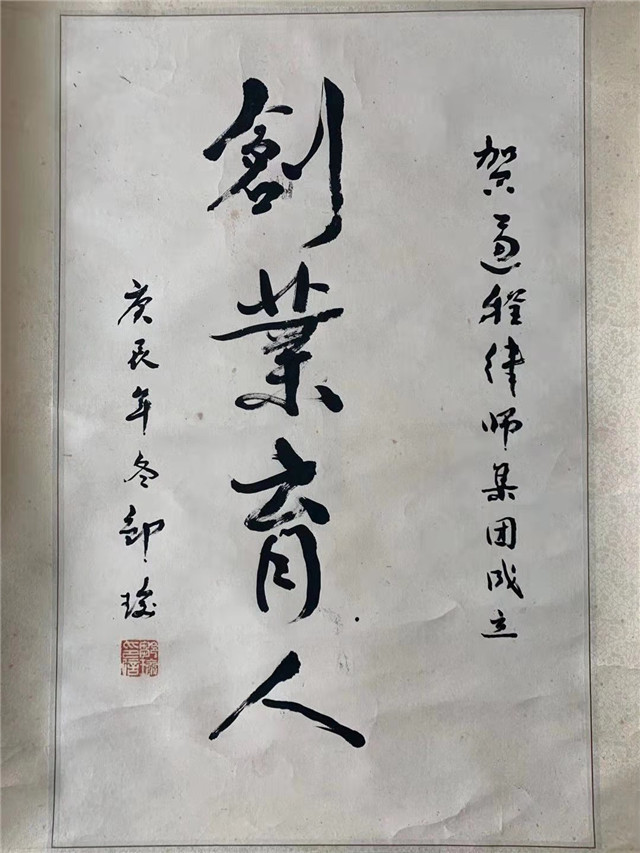 贺通程律师集团成立
創業育人
庚辰年冬邹瑜